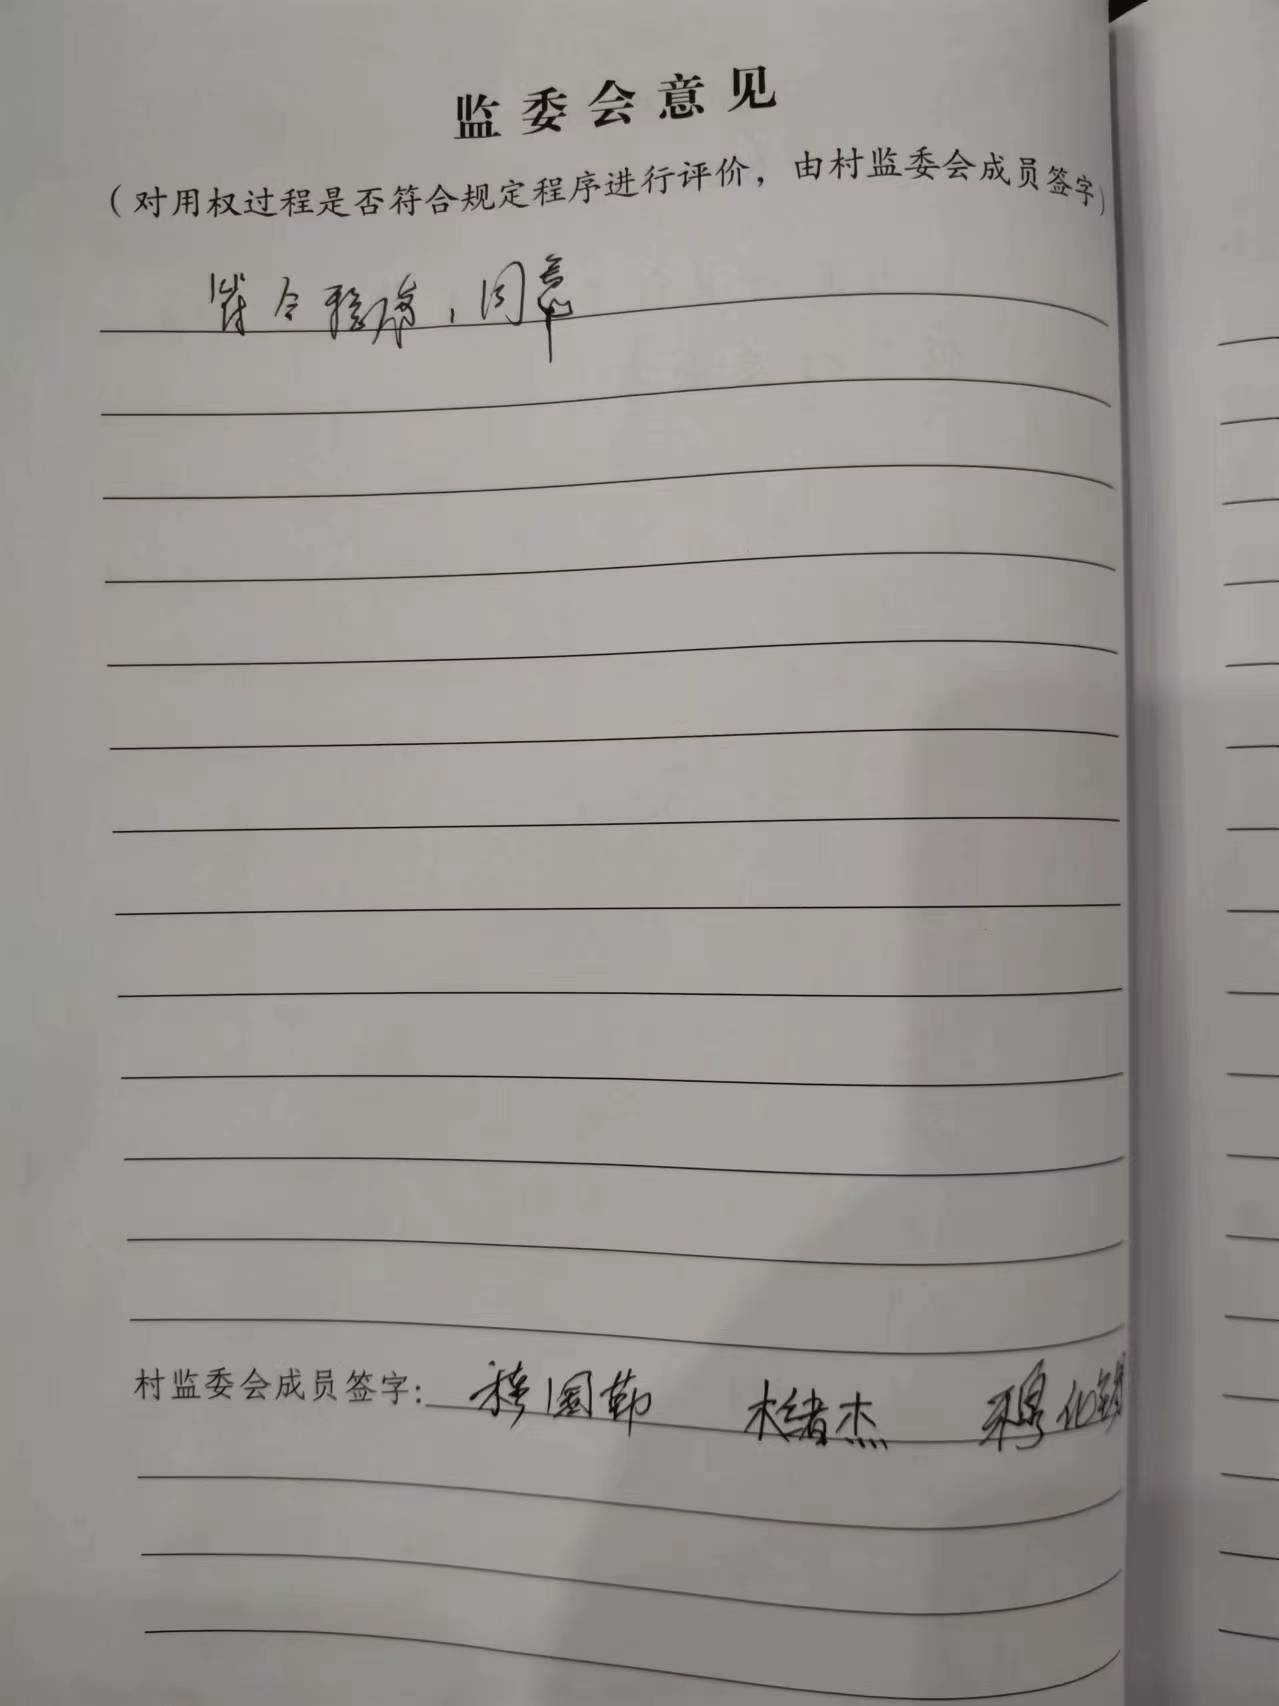 监委会意见
（对用权过程是否符合规定程序进行评价，由村监委会成员签字）
符合程序，同意
村监委会成员签字： 国勤 杰 穆化